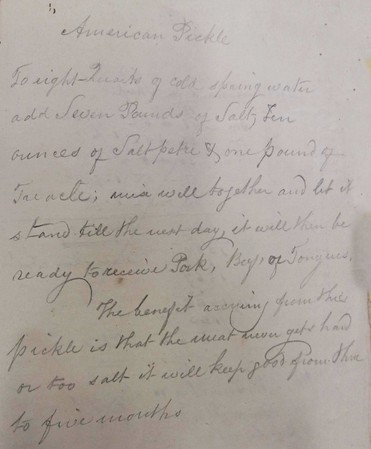 American Pickle
To eight Quarts of cold spring water
add Seven Pounds of Salt, Ten
ounces of Saltpetre & one pound of
Treacle; mix well together and let it
stand till the next day, it will then be
ready to receive Pork, Beef or Tongues.
The benefit accruing from this
pickle is that the meat never gets hard
or too salt it will keep good from three
to five months